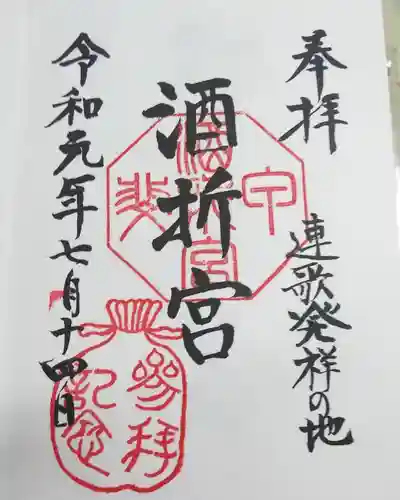 奉拝
連歌発祥の地
酒折宮
令和元年七月十四日
甲斐
酒折宮
参拝
記念